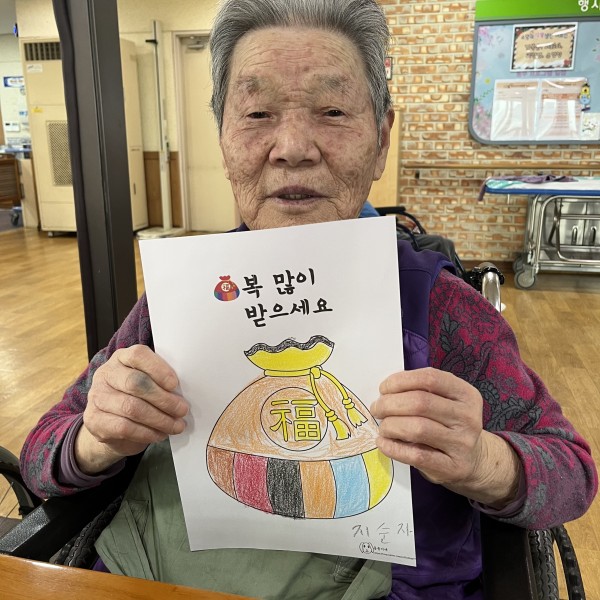 행시
복 많이
받으세요
福
지순자